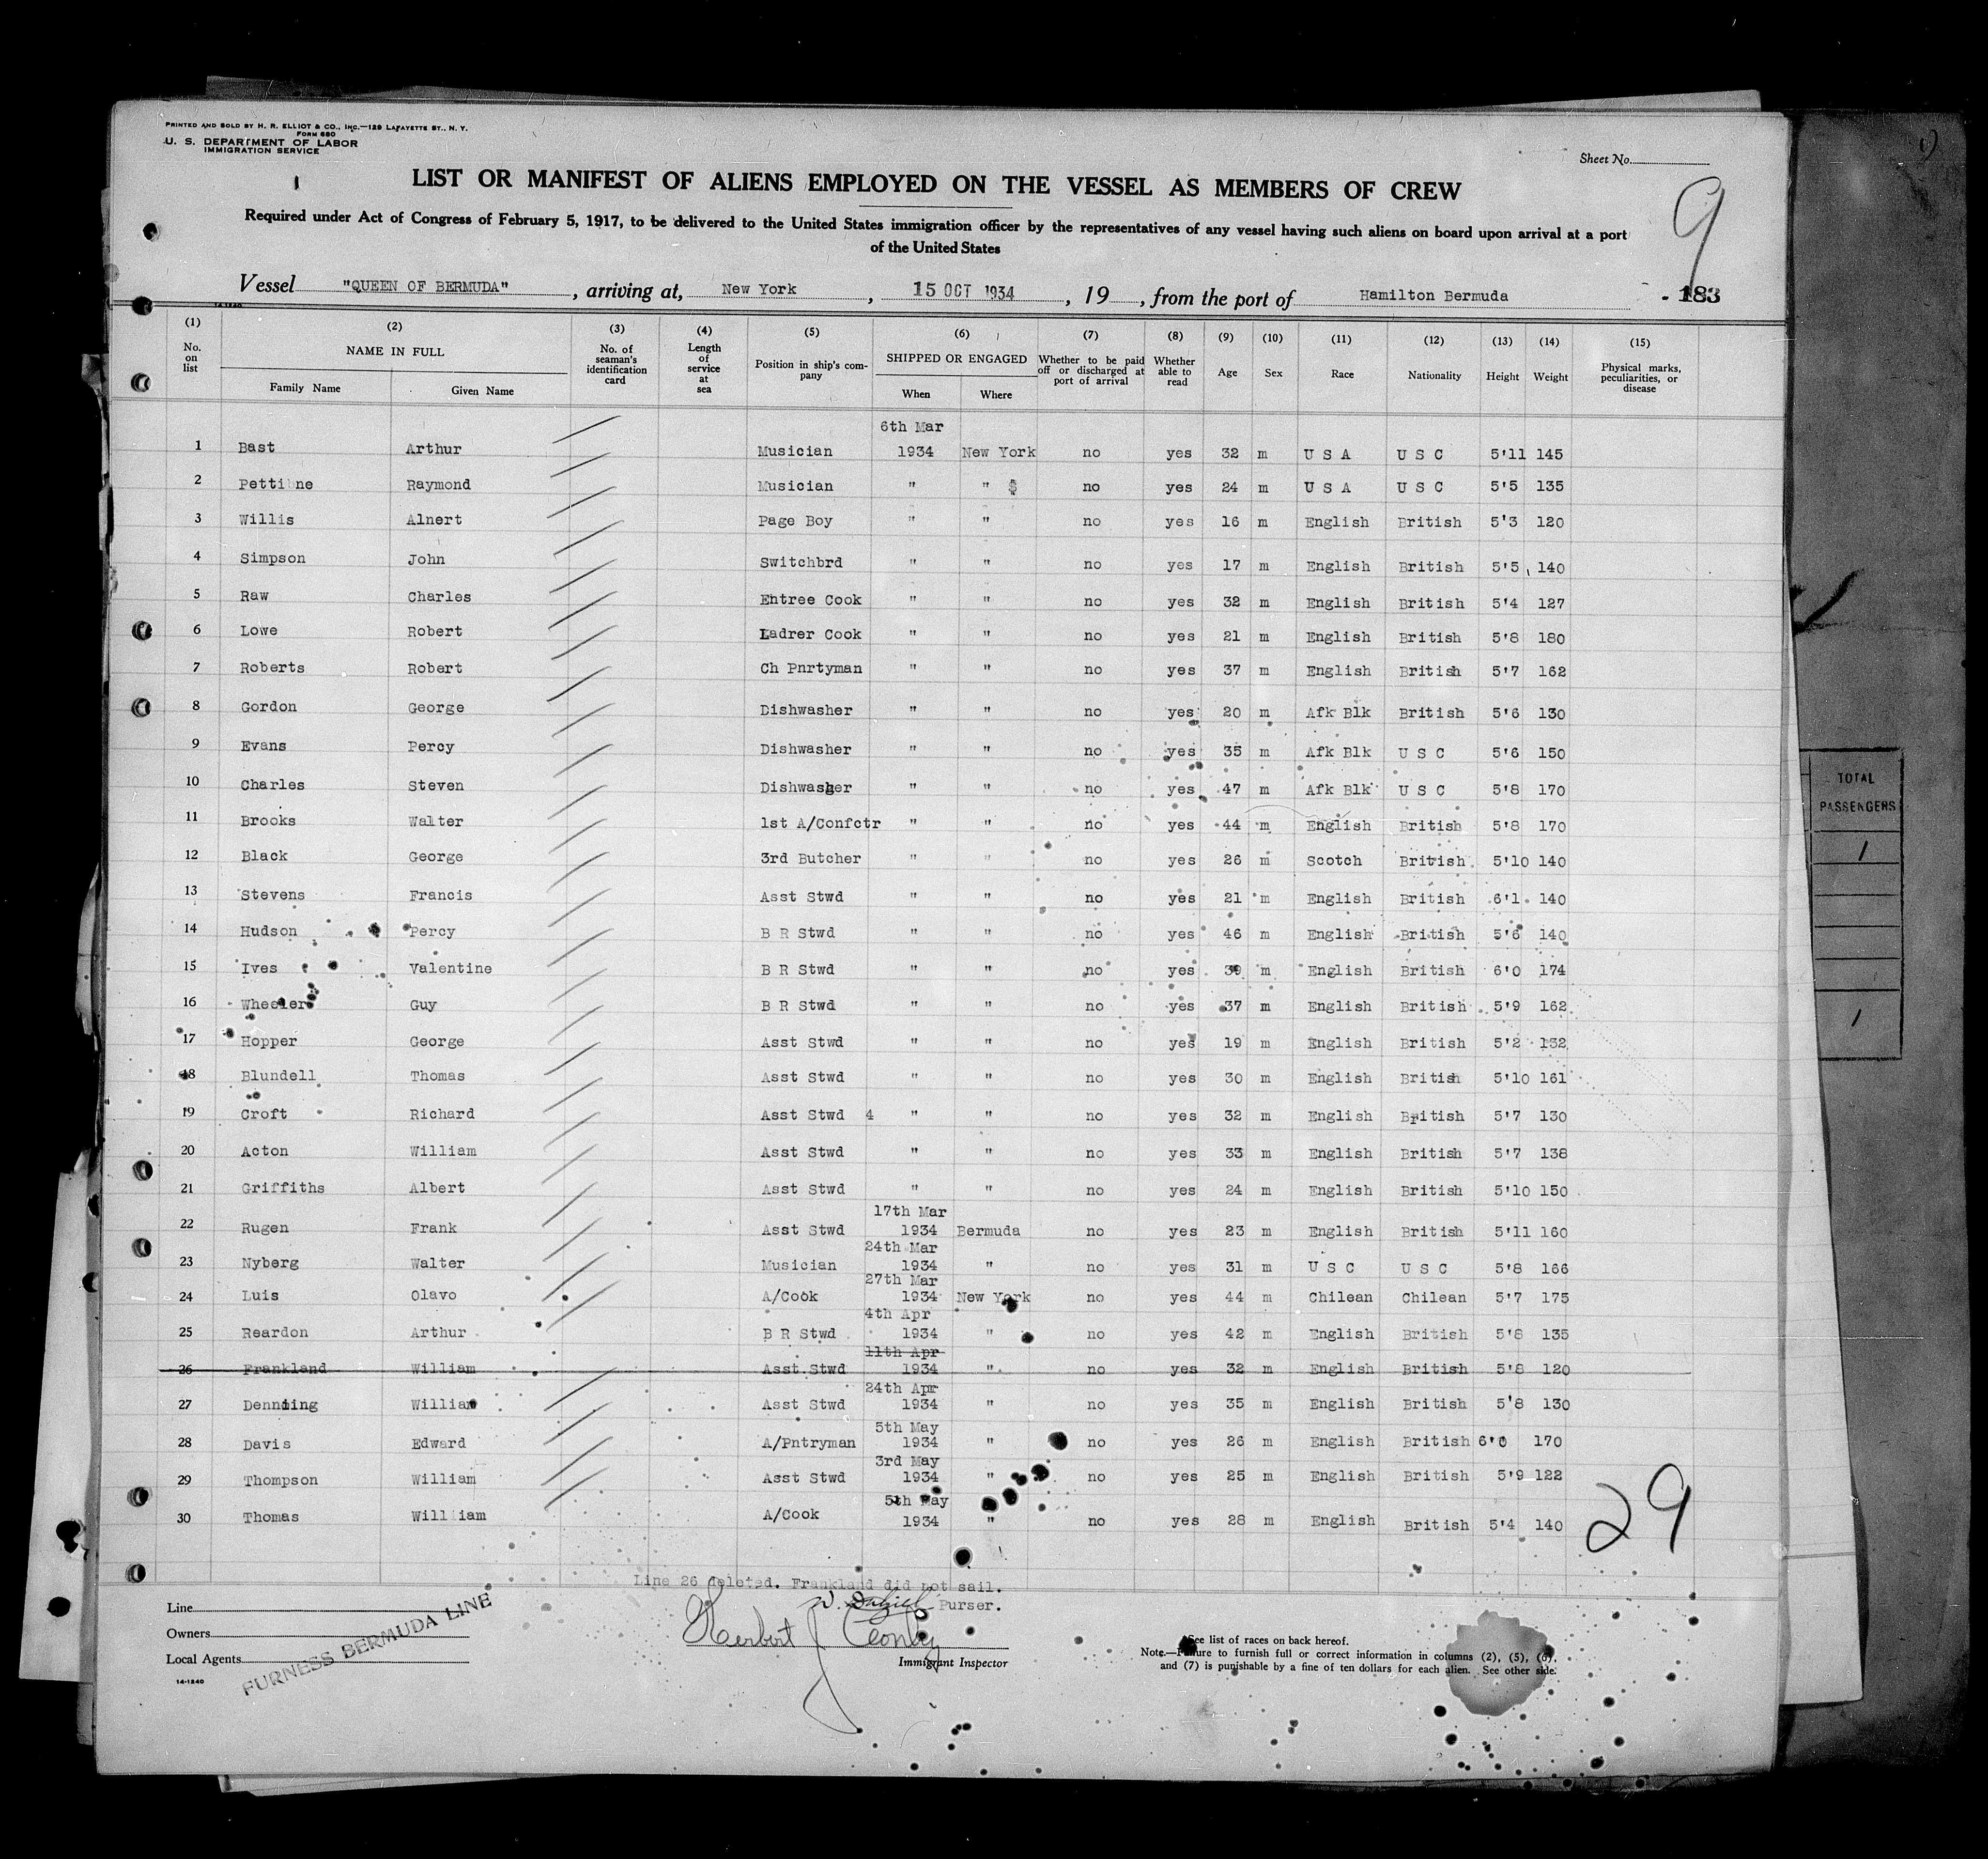 PRINTED AND SOLD BY H. R. ELLIOT & CO., INC.—129 LAFAYETTE ST., N. Y.
FORM 680
U. S. DEPARTMENT OF LABOR
IMMIGRATION SERVICE
Sheet No.
LIST OR MANIFEST OF ALIENS EMPLOYED ON THE VESSEL AS MEMBERS OF CREW
9
Required under Act of Congress of February 5, 1917, to be delivered to the United States immigration officer by the representatives of any vessel having such aliens on board upon arrival at a port
of the United States
Vessel "QUEEN OF BERMUDA", arriving at, New York, 15 OCT 1934, 19, from the port of Hamilton Bermuda 183
14-1240
(1) No. on list (2) NAME IN FULL Family Name Given Name (3) No. of seaman's identification card (4) Length of service at sea (5) Position in ship's com-pany (6) SHIPPED OR ENGAGED When Where (7) Whether to be paid off or discharged at port of arrival (8) Whether able to read (9) Age (10) Sex (11) Race (12) Nationality (13) Height (14) Weight (15) Physical marks, peculiarities, or disease
6th Mar
1 Bast Arthur Musician 1934 New York no yes 32 m U S A U S C 5'11 145
2 Petti ne Raymond Musician " " $ no yes 24 m U S A U S C 5'5 135
3 Willis Alnert Page Boy " " no yes 16 m English British 5'3 120
4 Simpson John Switchbrd " " no yes 17 m English British 5'5 140
5 Raw Charles Entree Cook " " no yes 32 m English British 5'4 127
6 Lowe Robert Ladrer Cook " " no yes 21 m English British 5'8 180
7 Roberts Robert Ch Pnrtyman " " no yes 37 m English British 5'7 162
8 Gordon George Dishwasher " " no yes 20 m Afk Blk British 5'6 130
9 Evans Percy Dishwasher " " no yes 35 m Afk Blk U S C 5'6 150
10 Charles Steven Dishwasher " " no yes 47 m Afk Blk U S C 5'8 170
11 Brooks Walter 1st A/Confctr " " no yes 44 m English British 5'8 170
12 Black George 3rd Butcher " " no yes 26 m Scotch British 5'10 140
13 Stevens Francis Asst Stwd " " no yes 21 m English British 6'1 140
14 Hudson Percy B R Stwd " " no yes 46 m English British 5'6 140
15 Ives Valentine B R Stwd " " no yes 39 m English British 6'0 174
16 Wheeler Guy B R Stwd " " no yes 37 m English British 5'9 162
17 Hopper George Asst Stwd " " no yes 19 m English British 5'2 132
18 Blundell Thomas Asst Stwd " " no yes 30 m English British 5'10 161
19 Croft Richard Asst Stwd 4 " " no yes 32 m English British 5'7 130
20 Acton William Asst Stwd " " no yes 33 m English British 5'7 138
21 Griffiths Albert Asst Stwd " " no yes 24 m English British 5'10 150
17th Mar
22 Rugen Frank Asst Stwd 1934 Bermuda no yes 23 m English British 5'11 160
24th Mar
23 Nyberg Walter Musician 1934 " no yes 31 m U S C U S C 5'8 166
27th Mar
24 Luis Olavo A/Cook 1934 New York no yes 44 m Chilean Chilean 5'7 175
4th Apr
25 Reardon Arthur B R Stwd 1934 " no yes 42 m English British 5'8 135
11th Apr
26 Frankland William Asst Stwd 1934 " no yes 32 m English British 5'8 120
24th Apr
27 Denning William Asst Stwd 1934 " no yes 35 m English British 5'8 130
5th May
28 Davis Edward A/Pntryman 1934 " no yes 26 m English British 6'0 170
3rd May
29 Thompson William Asst Stwd 1934 " no yes 25 m English British 5'9 122
5th May
30 Thomas William A/Cook 1934 " no yes 28 m English British 5'4 140
29
Line 26 deleted. Frankland did not sail.
Purser.
Line
Owners
Local Agents
FURNESS BERMUDA LINE
14-1240
Herbert J
Immigrant Inspector
See list of races on back hereof.
Note.—Failure to furnish full or correct information in columns (2), (5), (6),
and (7) is punishable by a fine of ten dollars for each alien. See other side.
TOTAL
PASSENGERS
1
1